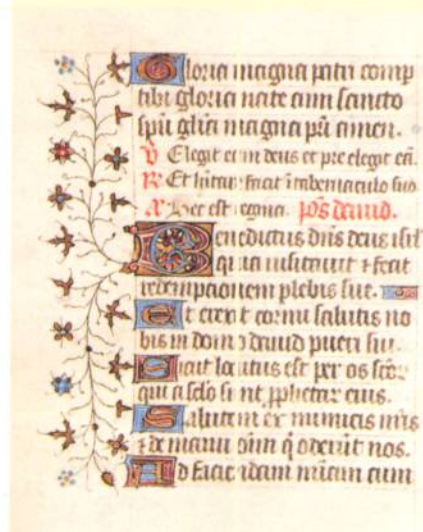 Gloria magna patri comp
tibi gloria nate cum sancto
spū gl̄ia magna pr̄i amen.
V Elegit eam deus et pre elegit eā.
R Et hītare facit ī tabernaculo suo
A Hec est regina. p̄s dauid.
Benedictus dn̄s deus isrl̄
quia uisitauit ⁊ fecit
redempcionem plebis sue.
Et erexit cornu salutis no
bis in domo dauid pueri sui.
Sicut locutus est per os scōꝝ
qui a sclo sunt ꝓphetaꝝ eius.
Salutem ex inimicis nr̄is
⁊ de manu oīm q̄ oderūt nos.
Ad faciendam mīam cum